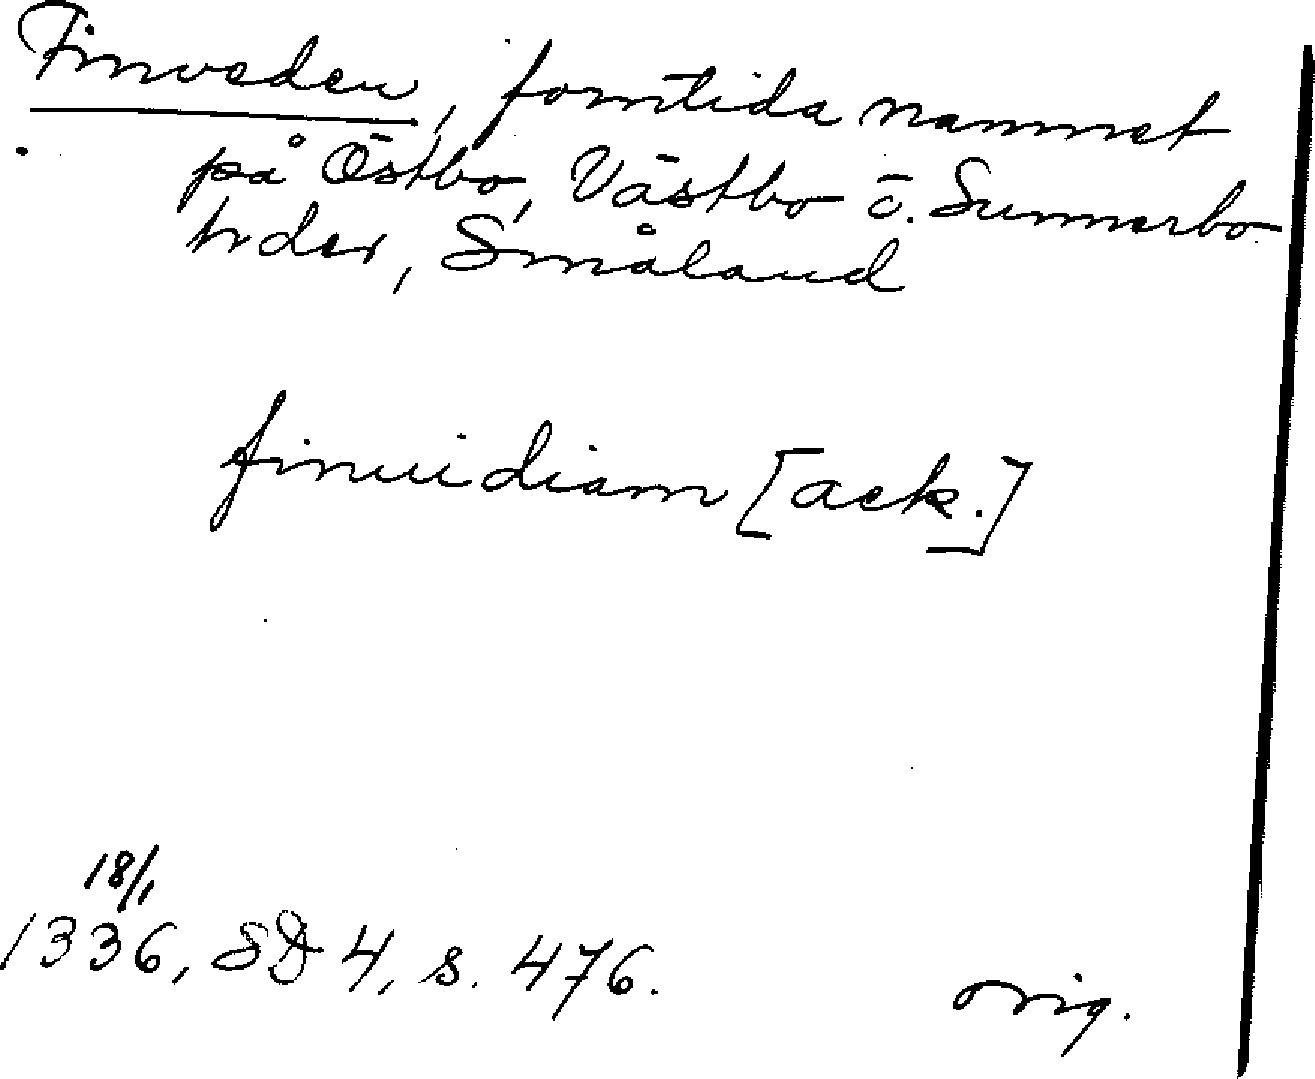 Finveden, forntida namnet
på Östbo, Västbo o. Sunnerbo
hrder, Småland
finuidiam [ack.]
18/1
1336, SD 4, s. 476.
orig.